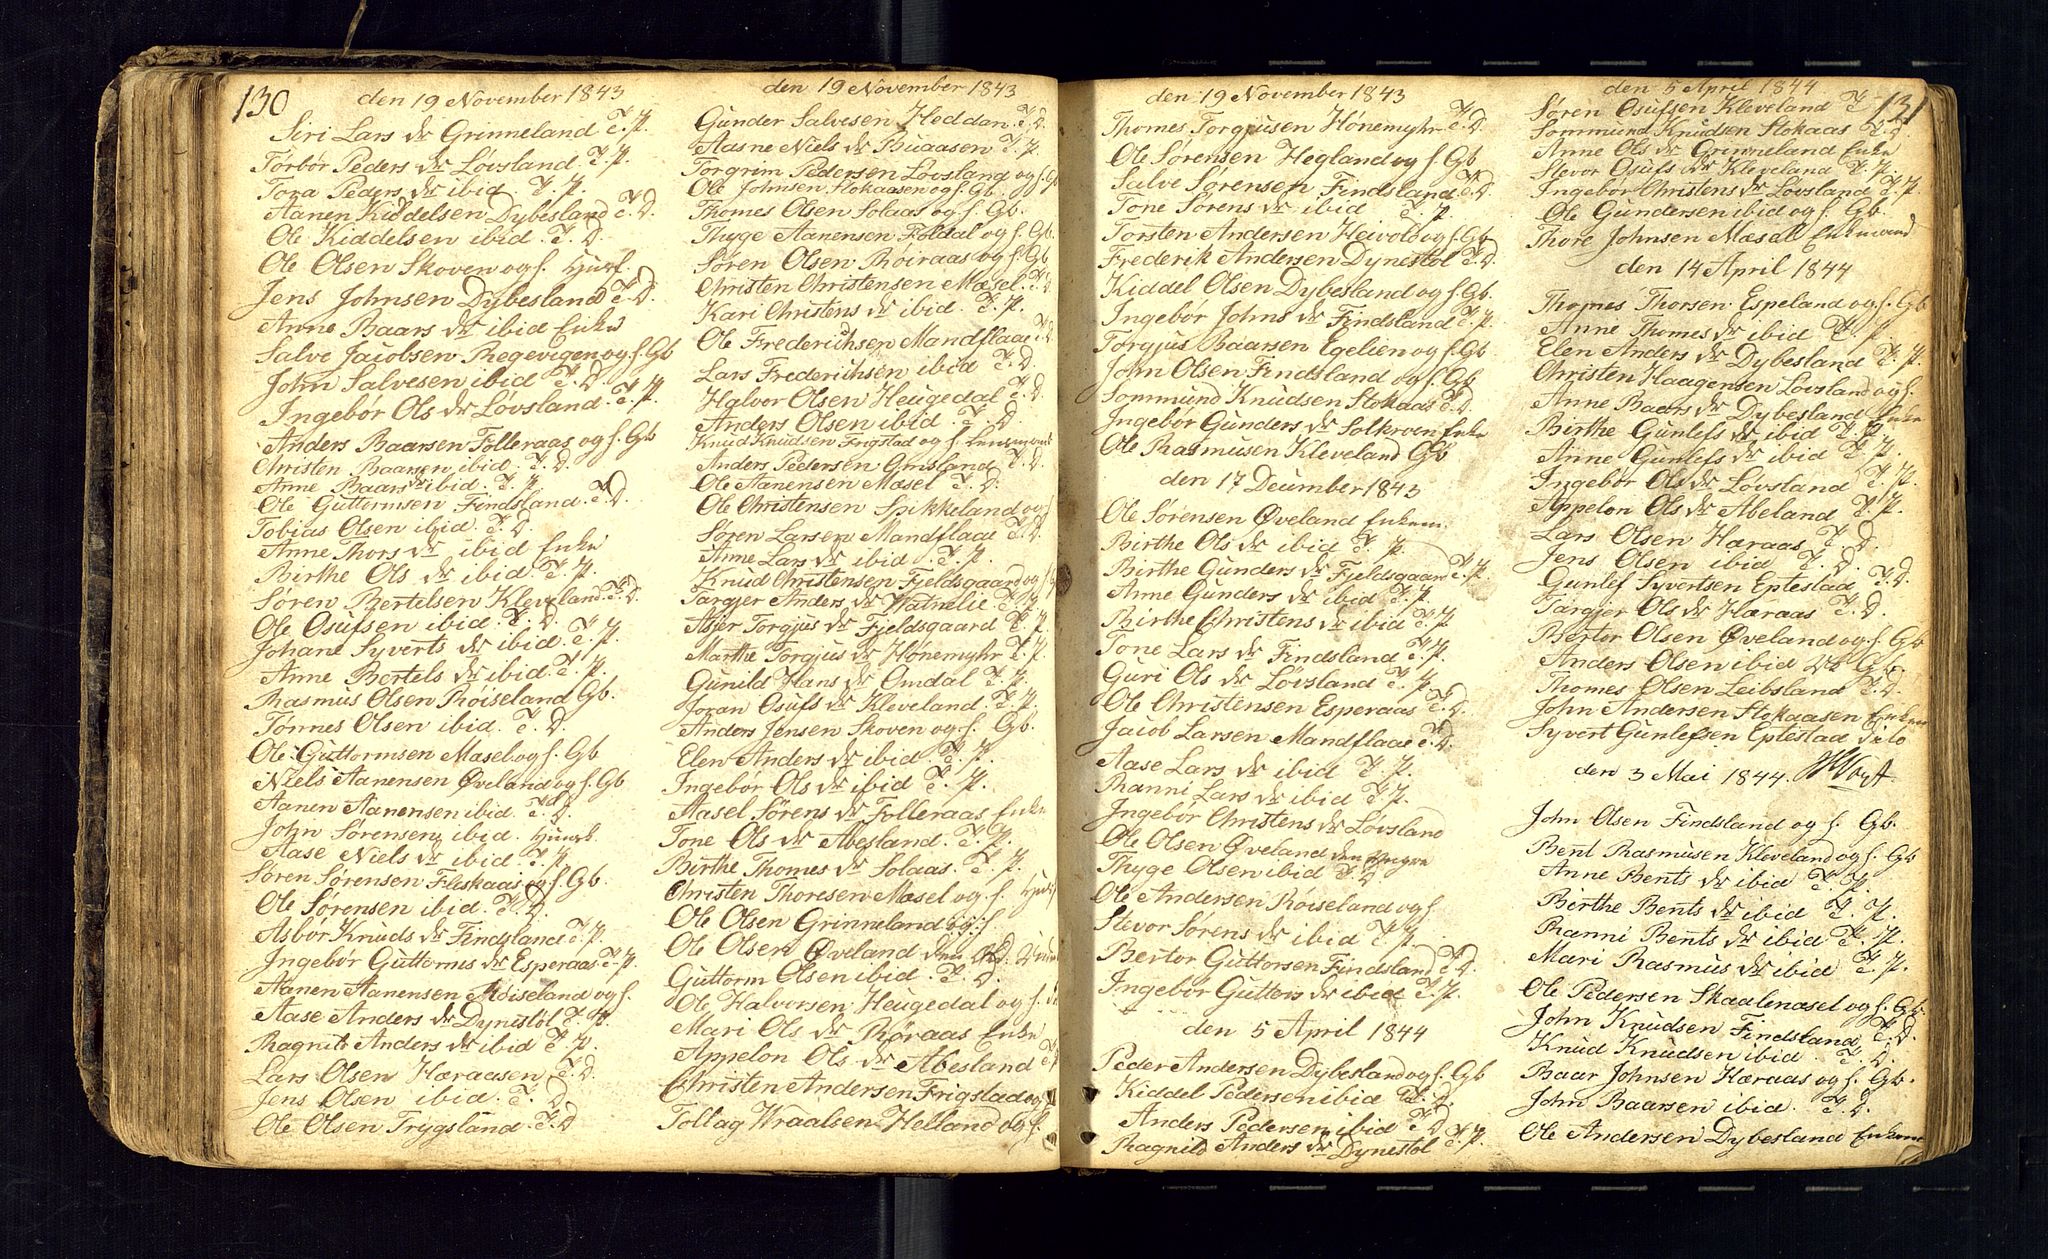 130
den 19 November 1843
Siri Lars dr Grinneland T. P.
Torbor Peders dr Løvsland T. P.
Tora Peders dr ibid. T. P.
Aanen Kiddelsen Dybesland T. D.
Ole Kiddelsen ibid. T. D.
Ole Olsen Skoven og f. Husf.
Jens Johnsen Dybesland T. D.
Anne Baars dr ibid Enke
Salve Jacobsen Regevigen og f. Gb
John Salvesen ibid T. D.
Ingebør Ols dr Løvsland T. P.
Anders Baarsen Folleraas og f. Gb
Christen Baarsen ibid. T. D.
Anne Baars dr ibid. T. P.
Ole Guttormsen Findsland. T. D.
Tobias Olsen ibid. T. D.
Anne Thors dr ibid Enke
Birthe Ols dr ibid. T. P.
Søren Bertelsen Kleveland. T. D.
Ole Osufsen ibid. T. D.
Johane Syverts dr ibid. T. P.
Anne Bertels dr ibid. T. P.
Rasmus Olsen Røiseland Gb.
Tønnes Olsen ibid. T. D.
Ole Guttormsen Mæsel og f. Gb
Niels Aanensen Øveland og f. Gb
Aanen Aanensen ibid. T. D.
John Sørensen ibid.
Aase Niels dr ibid T. P.
Søren Sørensen Fleskaas og f. Gb.
Ole Sørensen ibid. T. D.
Asbor Knuds dr Findsland T. P.
Ingebor Guttorms dr Esperaas T. P.
Aanen Aanensen Røiseland og f.
Aase Anders dr Dynestøl T. P.
Ragnild Anders dr ibid T. P.
Lars Olsen Hæraasen T. D.
Jens Olsen ibid. T. D.
Ole Olsen Trygsland. T. D
den 19 November 1843
Gunder Salvesen Heddan T. D.
Aasne Niels dr Buaasen T. P.
Torgrim Pedersen Løvsland og f. Gb
Ole Johnsen Stokaasen og f. Gb.
Thomes Olsen Solaas og f. Gb.
Thyge Aanensen Foldal og f. Gb.
Søren Olsen Røiraas og f. Gb
Christen Christensen Mæsel. T. D.
Kari Christens dr ibid. T. P.
Ole Frederichsen Mandflaae T. D.
Lars Frederichsen ibid T. D.
Halvor Olsen Heugedal T. D.
Anders Olsen ibid. T. D.
Knud Knudsen Frigstad og f.
Anders Pedersen Omsland T. D.
Ole Aanensen Mæsel T. D.
Ole Christensen Spikkeland og f
Søren Larsen Mandflaae T. D.
Anne Lars dr ibid T. P.
Knud Christensen Fjeldsgaard og f
Targjer Anders dr Vatnelie T. P.
Asjer Torgjus dr Fjeldsgaard T. P.
Marthe Torgjus dr Hønemyhr T. P.
Gunild Hans dr Omdal T. P.
Joran Osufs dr Kleveland. T. P.
Anders Jensen Skoven og f. Gb.
Elen Anders dr ibid. T. P.
Ingebør Ols dr ibid T. P.
Aasel Sørens dr Folleraas Enke
Tone Ols dr Abesland. T. P.
Birthe Thomes dr Solaas. T. P.
Christen Thoresen Mæsel og f.
Ole Olsen Grinneland og f.
Ole Olsen Øveland den
Guttorm Olsen ibid. T. D.
Ole Halvorsen Heugedal og f.
Mari Ols dr Røraas Enke
Appelon Ols dr Abesland T P
Christen Andersen Frigstad og f
Tollag Wraalsen Helland og f.
den 19 November 1843
Thomes Torgjusen Hønemyhr T. D.
Ole Sørensen Hegland og f. Gb
Salve Sørensen Findsland T. D.
Tone Sørens dr ibid T. P.
Torsten Andersen Heivold og f. Gb
Frederik Andersen Dynestøl T. D.
Kiddel Olsen Dybesland og f. Gb.
Ingebør Johns dr Findsland T. P.
Torgjus Baarsen Egelien og f. Gb
John Olsen Findsland og f. Gb
Sommund Knudsen Stokaas T. D.
Ingebør Gunders dr Solkroven Enke
Ole Rasmusen Kleveland Gb
den 17 December 1843
Ole Sørensen Øveland Enkem.
Birthe Ols dr ibid T. P.
Birthe Gunders dr Fjeldsgaar T. P.
Anne Gunders dr ibid T. P.
Birthe Christens dr ibid T. P.
Tone Lars dr Findsland T. P.
Guri Ols dr Løvsland T. P.
Ole Christensen Esperaas T. D.
Jacob Larsen Mandflaae T. D.
Aase Lars dr ibid T. P.
Ranni Lars dr ibid T. P.
Ingebør Christens dr Løvsland
Ole Olsen Øveland den yngre
Thyge Olsen ibid T. D
Ole Andersen Røiseland og f
Stevor Sørens dr ibid T. P.
Bertor Guttorsen Findsland T. D.
Ingebør Guttors dr ibid T. P.
den 5 April 1844
Peder Andersen Dybesland og f. Gb
Kiddel Pedersen ibid T. D.
Anders Pedersen ibid T. D
Ragnild Anders dr Dynestøl T. P.
131
den 5 April 1844
Søren Osufsen Kleveland T D
Sommund Knudsen Stokaas T. D.
Anne Ols dr Grinneland Enke
Stevor Osufs dr Kleveland T. P.
Ingebor Christens dr Løvsland T. P.
Ole Gundersen ibid og f. Gb.
Thore Johnsen Mæsel Enkemand
den 14 April 1844
Thomes Thorsen Espeland og f. Gb
Anne Thomes dr ibid T. P
Elen Anders dr Dybesland T. P.
Christen Haagensen Løvsland og f.
Anne Baars dr Dybesland Enke
Birthe Gunlefs dr ibid T. P.
Anne Gunlefs dr ibid T. P.
Ingebør Ols dr Løvsland T. P.
Appelon Ols dr Abeland T. P.
Lars Olsen Hæraas T. D.
Jens Olsen ibid T. D.
Gunlef Syvertsen Eptestad T. D.
Targjer Ols dr Hæraas T. D.
Bertor Olsen Øveland og f. Gb
Anders Olsen ibid Gb.
Thomes Olsen Leibsland T. D.
John Andersen Stokaasen Enkem
Syvert Gunlefsen Eptestad dito
den 3 Mai 1844.
John Olsen Findsland og f. Gb.
Bent Rasmusen Kleveland og f. Gb
Anne Bents dr ibid T. P.
Birthe Bents dr ibid T. P.
Ranni Bents dr ibid T. P.
Mari Rasmus dr ibid T. P.
Ole Pedersen Skaalemæsel og f. Gb.
John Knudsen Findsland T. D.
Knud Knudsen ibid. T. D.
Baar Johnsen Hæraas og f. Gb.
John Baarsen ibid. T. D.
Ole Andersen Dybesland Enkem